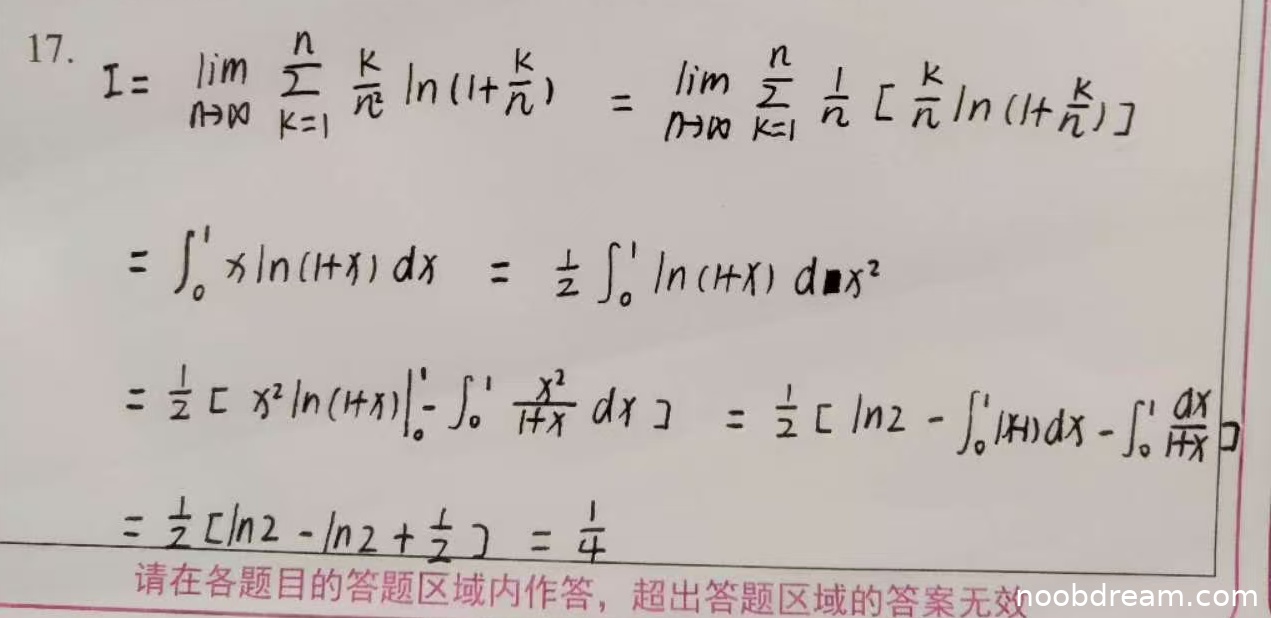 17. I = lim n→∞ Σ k=1 n k/n² ln(1+k/n) = lim n→∞ Σ k=1 n 1/n [k/n ln(1+k/n)]
= ∫₀¹ x ln(1+x) dx = 1/2 ∫₀¹ ln(1+x) d x²
= 1/2 [ x² ln(1+x)|₀¹ - ∫₀¹ x²/(1+x) dx ] = 1/2 [ ln2 - ∫₀¹ (x-1)dx - ∫₀¹ dx/(1+x) ]
= 1/2 [ln2 - ln2 + 1/2] = 1/4
请在各题目的答题区域内作答，超出答题区域的答案无效
noobdream.com